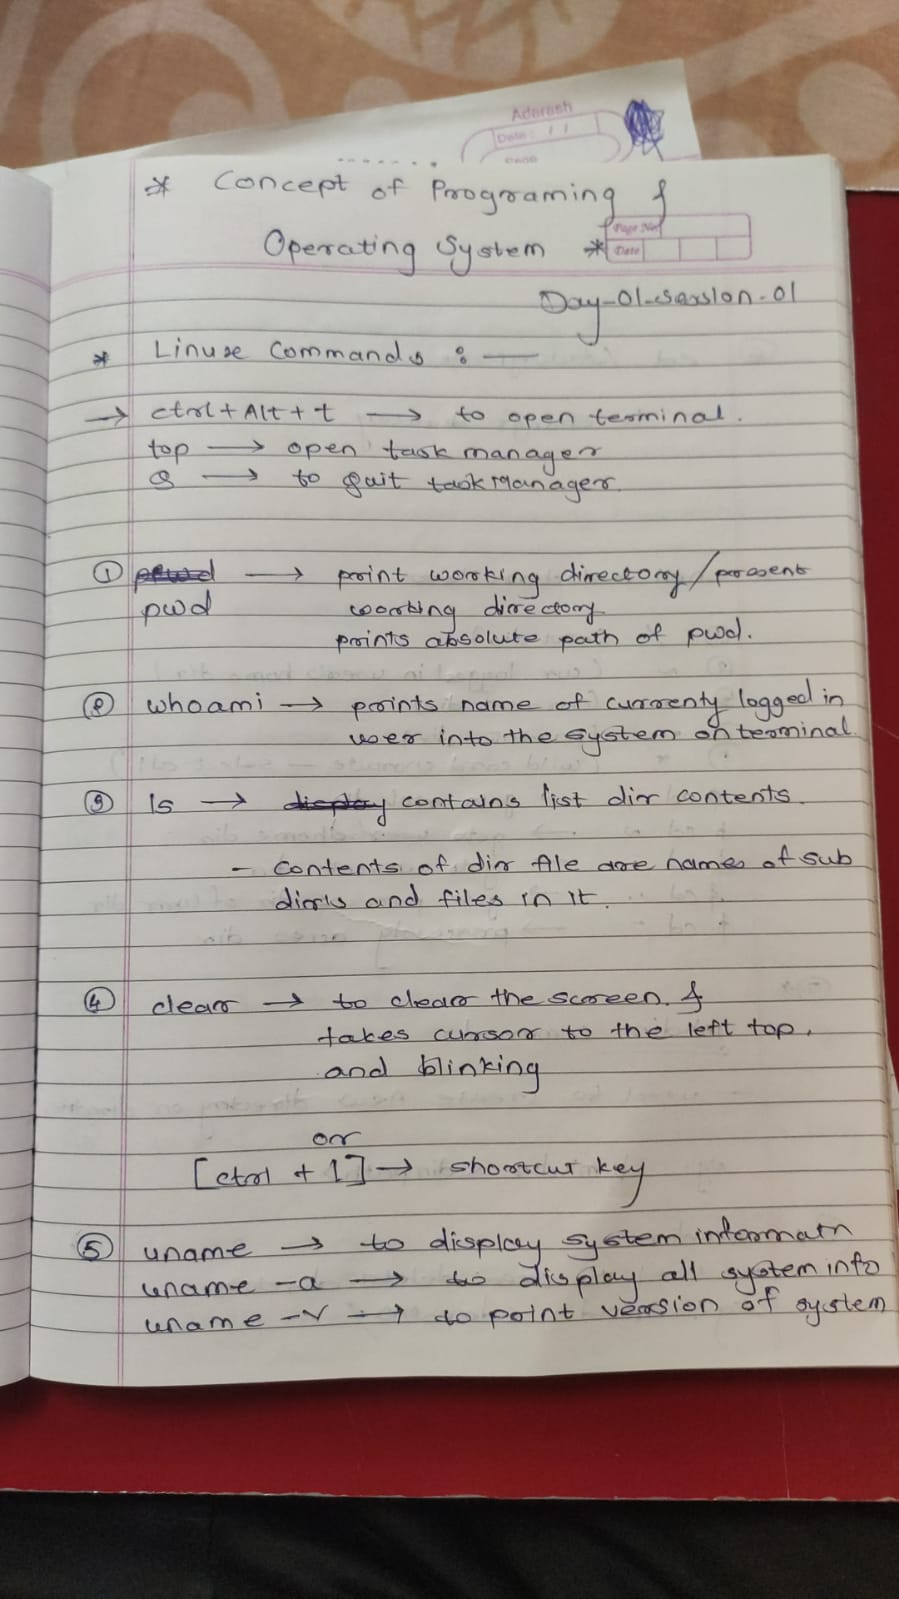 Adarash
Date: / /
* Concept of Programing &
Page No.
Operating System *
Date
Day-01-session-01
* Linuxe Commands : —
→ ctrl + Alt + t → to open terminal.
top → open task manager
q → to quit taskmanager.
① pwd → print working directory/present
pwd working directory
prints absolute path of pwd.
② whoami → prints name of currenty logged in
user into the system on terminal
③ ls → display contains list dir contents.
- contents of dir file are names of sub
dirrs and files in it.
④ clear → to clear the screen &
takes cursor to the left top.
and blinking
or
[ctrl + l] → shortcut key
⑤ uname → to display system informatn
uname -a → to display all system info
uname -v → to print version of system